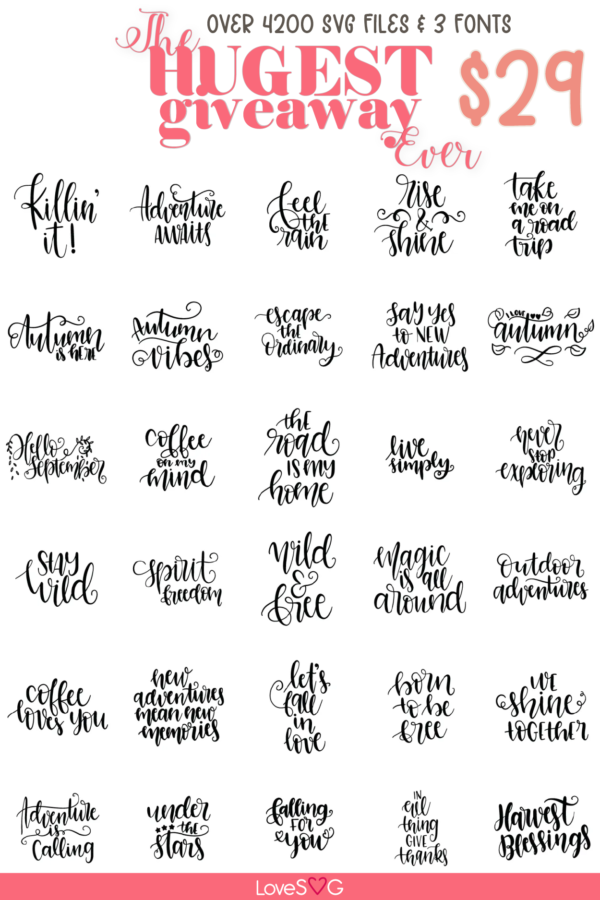 OVER 4200 SVG FILES & 3 FONTS
The
HUGEST
giveaway
Ever
$29
Killin'
it!
Adventure
AWAITS
feel
THE
rain
rise
&
shine
take
me on
a road
trip
Autumn
is here
Autumn
vibes
escape
the
Ordinary
SAY YES
to NEW
Adventures
I LOVE
autumn
Hello
September
coffee
on my
mind
the
road
IS MY
home
live
simply
never
STOP
exploring
STAY
wild
spirit
freedom
wild
&
free
Magic
is all
around
Outdoor
adventures
coffee
loves you
new
adventures
mean new
memories
let's
fall
in
love
born
to be
free
WE
shine
TOGETHER
Adventure
is
Calling
under
the
stars
falling
FOR
you
IN
all
thing
GIVE
thanks
Harvest
Blessings
LoveSVG